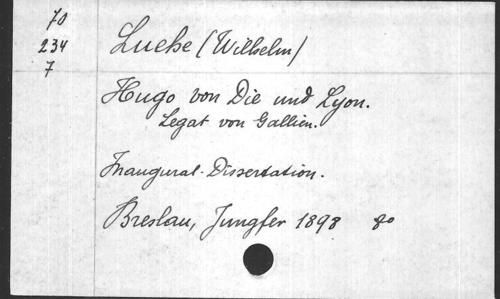 70
234
7
Luehe (Wilhelm)
Hugo von Die und Lyon.
Legat von Gallien.
Inaugural-Dissertation.
Breslau, Jungfer 1898 8o